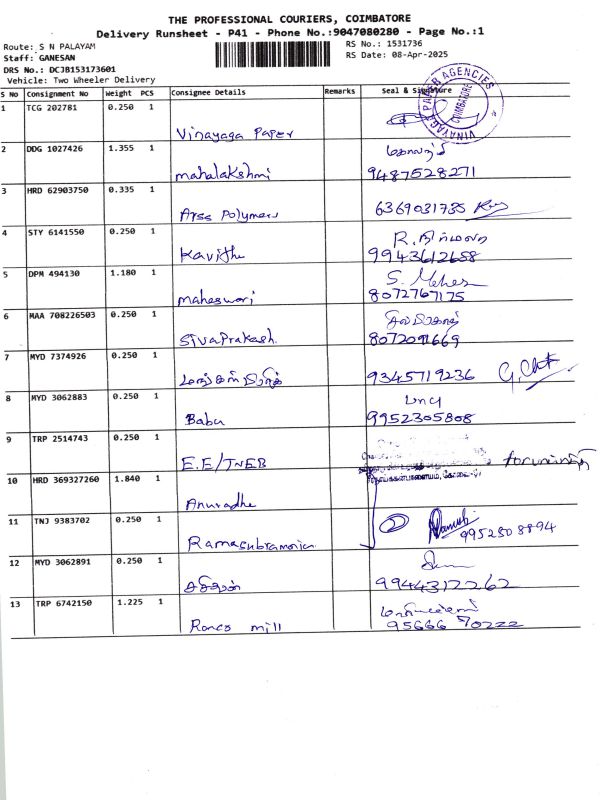 THE PROFESSIONAL COURIERS, COIMBATORE
Delivery Runsheet - P41 - Phone No.:9047080280 - Page No.:1
Route: S N PALAYAM
RS No.: 1531736
Staff: GANESAN
RS Date: 08-Apr-2025
DRS No.: DCJB153173601
Vehicle: Two Wheeler Delivery
S No Consignment No Weight PCS Consignee Details Remarks Seal & Signature
VINAYAGA PAPER AGENCIES
COIMBATORE
1 TCG 202781 0.250 1
Vinayaga Paper
2 DDG 1027426 1.355 1
mahalakshmi 9487528271
3 HRD 62903750 0.335 1
Arss Polymers 6369031735
4 STY 6141550 0.250 1
Kavitha 9943612658
5 DPM 494130 1.180 1 S. Mehes
maheswari 8072767175
6 MAA 708226503 0.250 1
SivaPrakash. 8072091669
7 MYD 7374926 0.250 1
9345719236
8 MYD 3062883 0.250 1 பாபு
Babu 9952305808
9 TRP 2514743 0.250 1
E.E/TNEB
10 HRD 369327260 1.840 1
Anuradha
11 TNJ 9383702 0.250 1
Ramasubramonian 9952508894
12 MYD 3062891 0.250 1
9944312262
13 TRP 6742150 1.225 1
Ranes mill 95666 70222